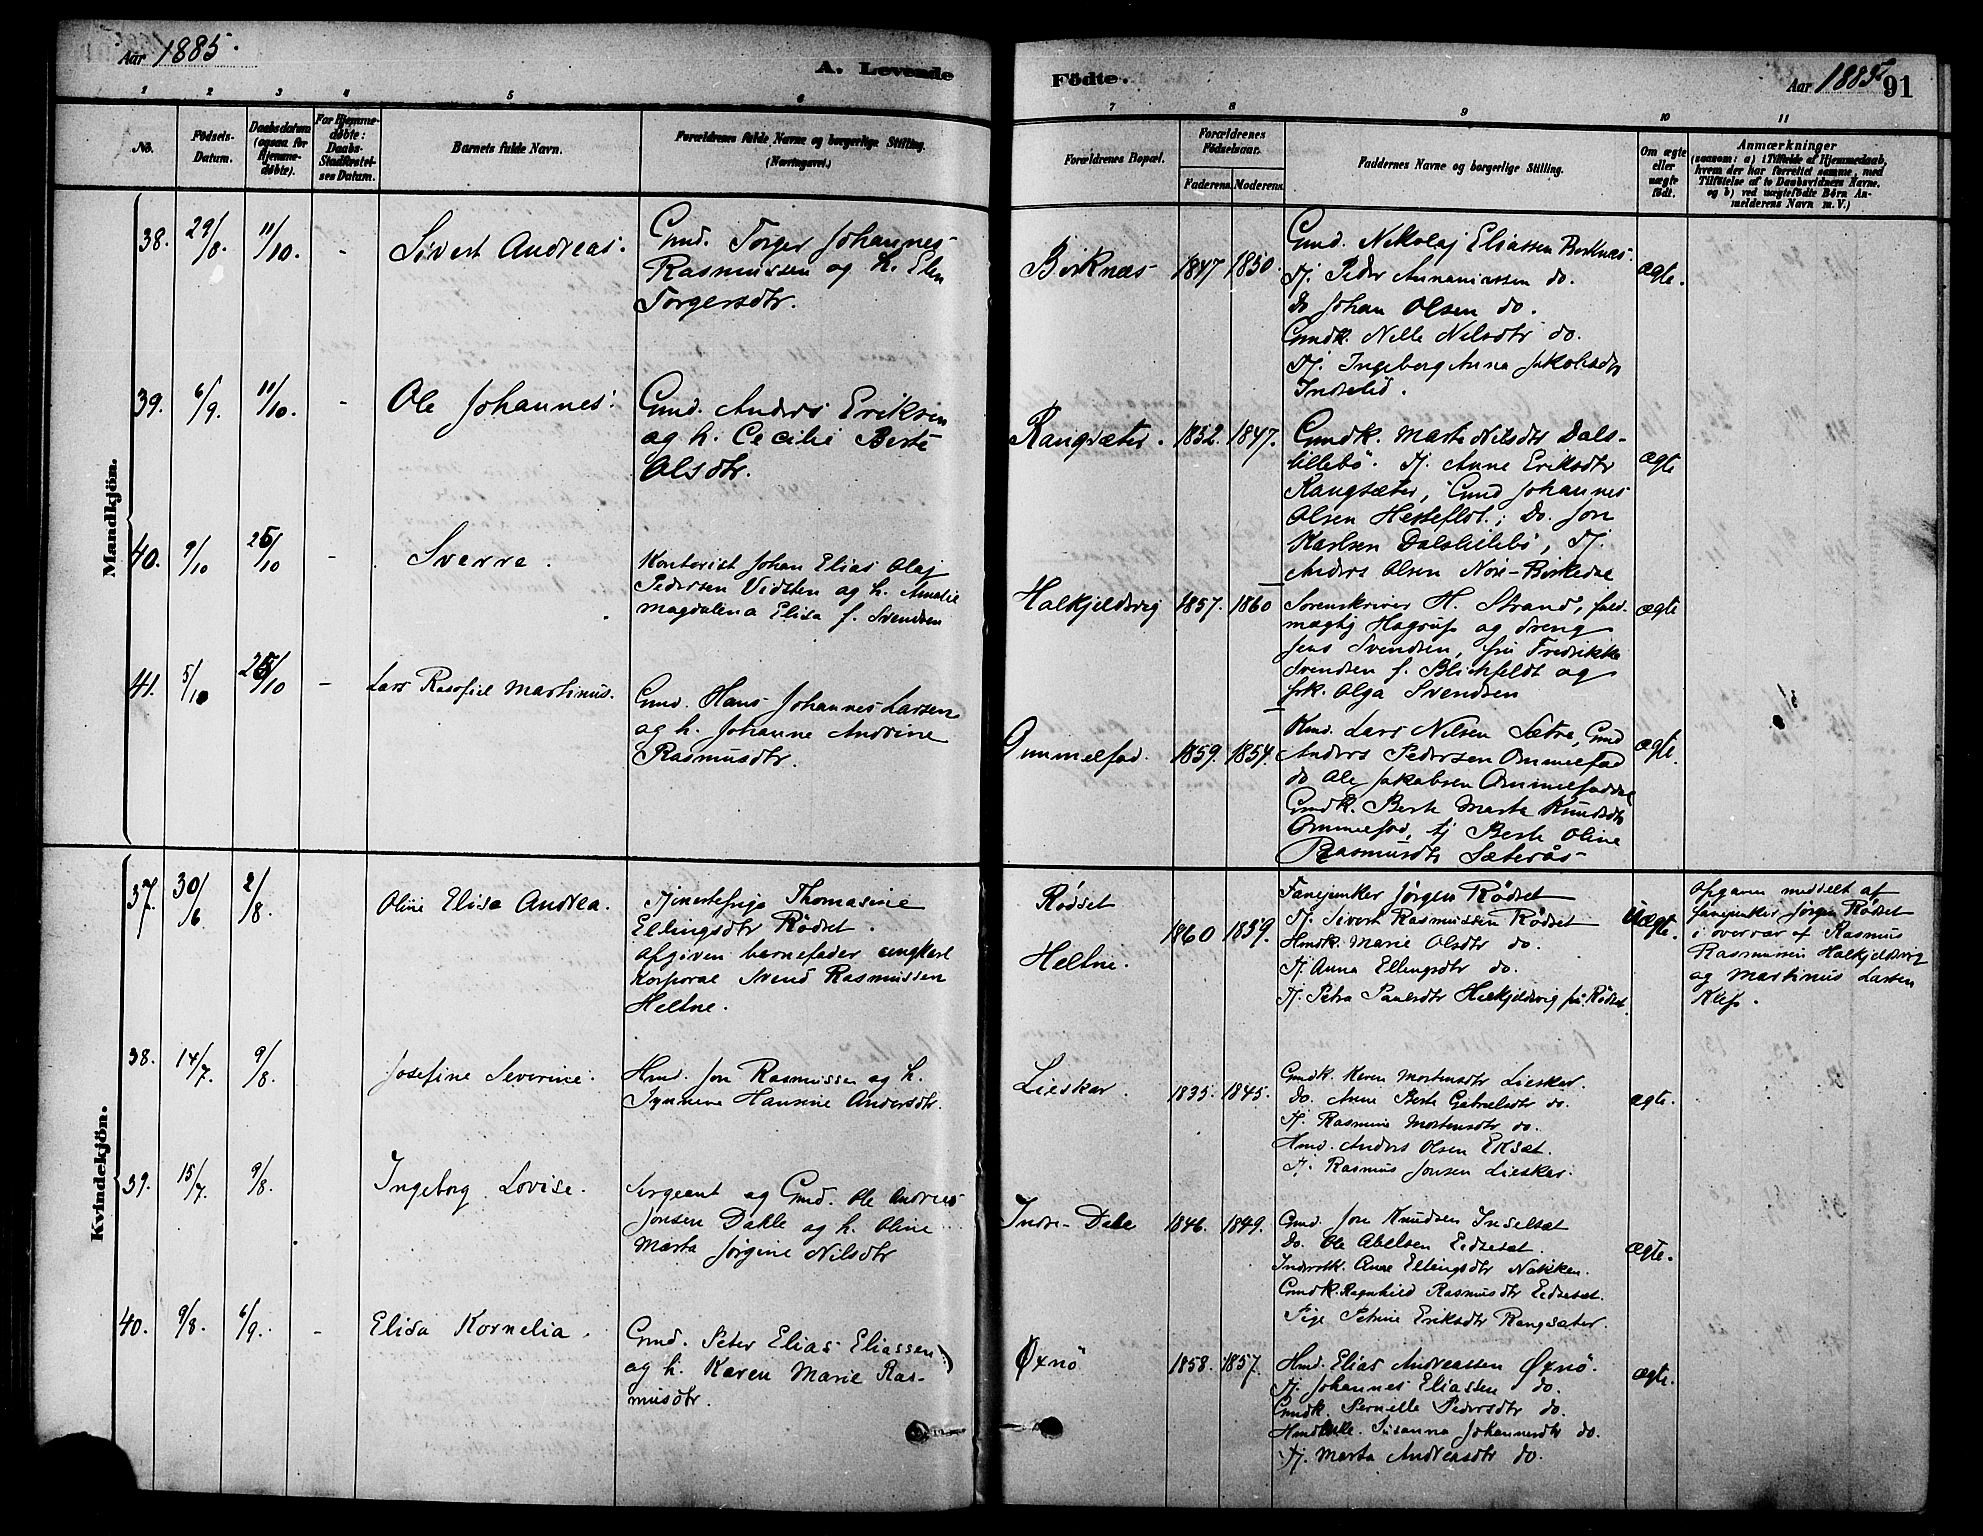 Aar 1885.
A. Levende
1 2 3 4 5 6
No.
Födsels-
Datum.
Daabsdatum
(ogsaa for
Hjemme-
döbte).
For Hjemme-
döbte:
Daabs-
Stadfæstel-
ses Datum.
Barnets fulde Navn.
Forældrenes fulde Navne og borgerlige Stilling.
(Næringsvei.)
Mandkjön.
38. 29/8. 11/10. - Sivert Andreas.
Gmd. Torger Johannes
Rasmussen og h. Elen
Torgersdtr.
39. 6/9. 11/10. - Ole Johannes.
Gmd. Anders Eriksen
og h. Cecilie Berte
Olsdtr.
40. 9/10 25/10 - Sverre.
Kontorist Johan Elias Olaj
Pedersen Vidsten og h. Amalie
Magdalena Elisa f. Svendsen
41. 5/10 25/10 - Lars Rasofiel Martinus.
Gmd. Hans Johannes Larsen
og h. Johanne Andrine
Rasmusdtr.
Kvindekjön.
37. 30/6 2/8. Oline Elisa Andrea.
Tjenestepige Thomasine
Ellingsdtr Rödset.
Opgiven barnefader ungkarl
Korporal Svend Rasmussen
Heltne.
38. 14/7. 9/8. Josefine Severine.
Hmd. Jon Rasmussen og h.
Synneve Hansine Andersdtr.
39. 15/7. 9/8. Ingeborg Lovise.
Sergeant og Gmd. Ole Andreas
Jonsen Dahle og h. Oline
Marta Jörgine Nilsdtr
40. 9/8. 6/9. - Elisa Kornelia.
Gmd. Peter Elias Eliassen
og h. Karen Marie Ras-
musdtr.
Födte.
Aar 1885 91
7 8 9 10 11
Forældrenes Bopæl.
Forældrenes
Födselsaar.
Faderens. Moderens.
Faddernes Navne og borgerlige Stilling.
Om ægte
eller
uægte
födt.
Anmærkninger
(saasom: a) i Tilfælde af Hjemmedaab,
hvem der har forrettet samme, med
Tilföielse af to Daabsvidners Navne,
og b) ved uægtefödte Börn An-
melderens Navn m. V.)
Birknes 1847 1850.
Gmd. Nikolaj Eliassen Birknes.
Tj. Peder Annaniassen do.
do Johan Olsen do.
Gmdk. Nille Nilsdtr do.
Tj. Ingeborg Anna Jakobsdtr
Indrelid.
ægte.
Rangsæter. 1852. 1847.
Gmdk. Marte Nilsdtr Dals-
lillebö. Tj. Anne Eriksdtr
Rangsæter, Gmd Johannes
Olsen Hesteflot; do. Jon
Karlsen Dalslillebö, Tj.
Anders Olsen Nore-Birkedal
ægte
Halkjeldsvig 1857. 1860
Sorenskriver H. Strand, fuld-
mægtig Hagrup og dreng
Jens Svendsen, fru Fredrikke
Svendsen f. Blichfeldt og
frk. Olga Svendsen
ægte
Ommelfad. 1859. 1854.
Kmd. Lars Nilsen Sætra, Gmd
Anders Pedersen Ommelfad
do Ole Jakobsen Ommelfaddal
Gmdk. Berte Marte Knudsdtr
Ommelfad, tj Berte Oline
Rasmusdtr Sæterås
ægte.
Rödset
Heltne.
1860 1859.
Fanejunker Jörgen Rödset
Tj. Sivert Rasmussen Rödset
Hmdk. Marie Olsdtr do.
Tj. Anna Ellingsdtr do.
Tj. Petra Paulsdtr Halkjeldsvig på Rödset.
Uægte.
Opgaven meddelt af
fanejunker Jörgen Rödset
i overvær af Rasmus
Rasmussen Halkjeldsvig
og Martinus Larsen
Klep.
Lieskar 1835. 1845.
Gmdk. Karen Mortensdtr Lieskar.
do. Anne Berte Gabrielsdtr do.
Tj. Rasmine Mortensdtr do.
Hmd. Anders Olsen Eikset.
Tj. Rasmus Jonsen Lieskar.
ægte.
Indre-Dale 1846. 1849.
Gmd. Jon Knudsen Indselset
do. Ole Abelsen Eidseset.
Inderstk. Anne Ellingsdtr Nakken.
Gmdk. Ragnhild Rasmusdtr Eidseset.
Pige Petrine Eriksdtr Rangsæter.
ægte.
Öxnö 1858. 1857.
Hmd. Elias Andreassen Öxnö.
Tj. Johannes Eliassen do.
Gmdk. Pernelle Pedersdtr do.
Hmdenke. Susanna Johannesdtr do.
Tj. Marta Andreasdtr do.
ægte.